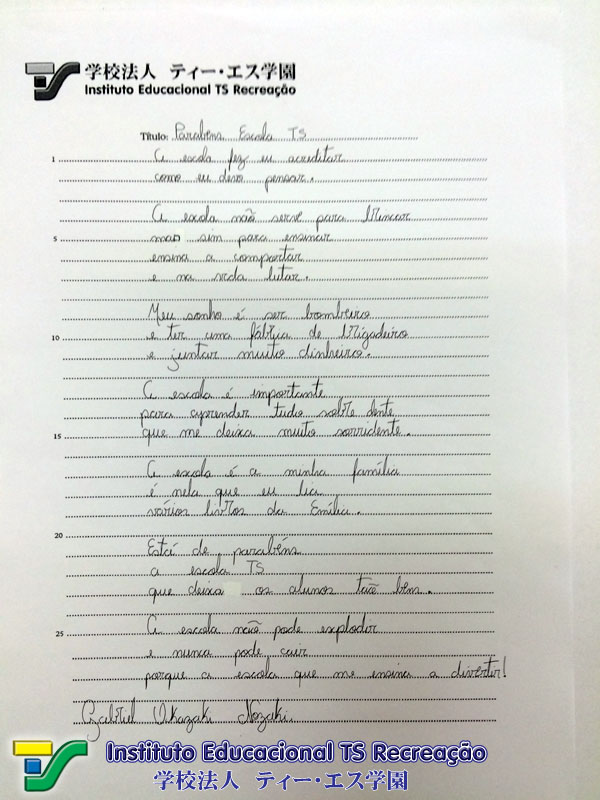 学校法人 ティー・エス学園
Instituto Educacional TS Recreação
Título: Parabéns Escola TS
1 A escola fez eu acreditar
como eu devo pensar.
A escola não serve para brincar
5 mas sim para ensinar
ensina a comportar
e na vida lutar.
Meu sonho é ser bombeiro
10 e ter uma fábrica de brigadeiro
e juntar muito dinheiro.
A escola é importante
para aprender tudo sobre dente
15 que me deixa muito sorridente.
A escola é a minha família
é nela que eu lia
vários livros da Emília.
20
Está de parabéns
a escola TS
que deixa os alunos tão bem.
A escola não pode explodir
25
e nunca pode cair
porque a escola que me ensina a divertir!
Gabriel Okazaki Nozaki.
TS Instituto Educacional TS Recreação
学校法人 ティー・エス学園